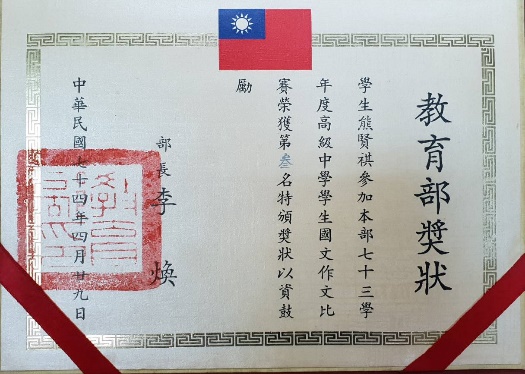 教育部獎狀
學生熊賢祺參加本部七十三學
年度高級中學學生國文作文比
賽榮獲第叁名特頒獎狀以資鼓
勵
部長李煥
中華民國七十四年四月廿九日